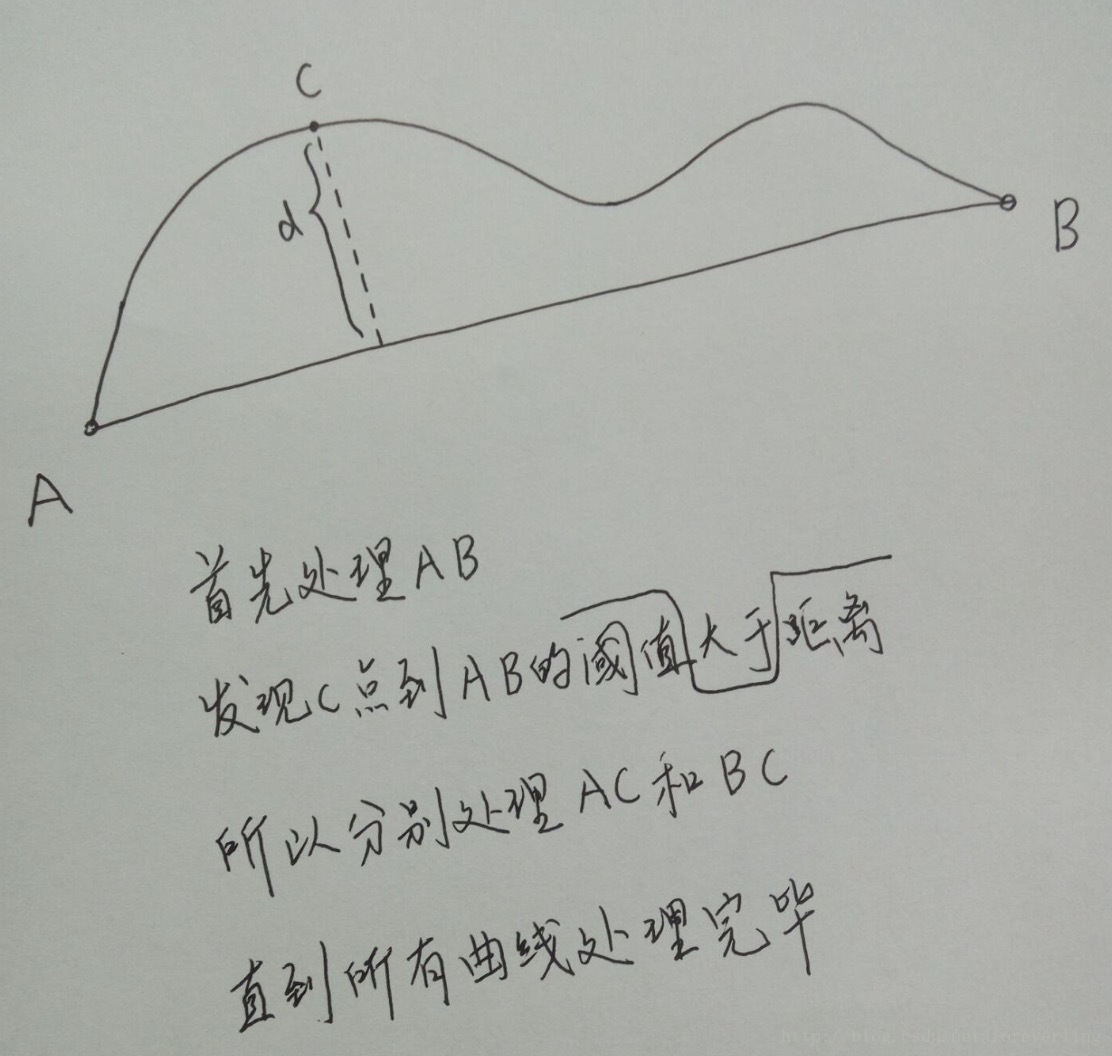 C
d
B
A
首先处理AB
发现C点到AB的阈值大于距离
所以分别处理AC和BC
直到所有曲线处理完毕